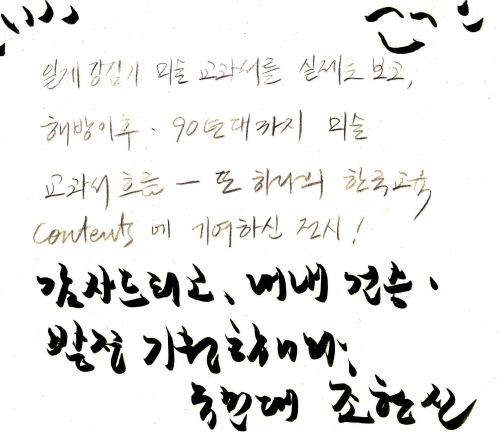 일제강점기 미술 교과서를 실제로 보고,
해방이후 · 90년대까지 미술
교과서 흐름 — 또 하나의 한국교육
Contents 에 기여하신 전시!
감사드리고, 내내 건승·
발전 기원합니다.
국민대 조현신